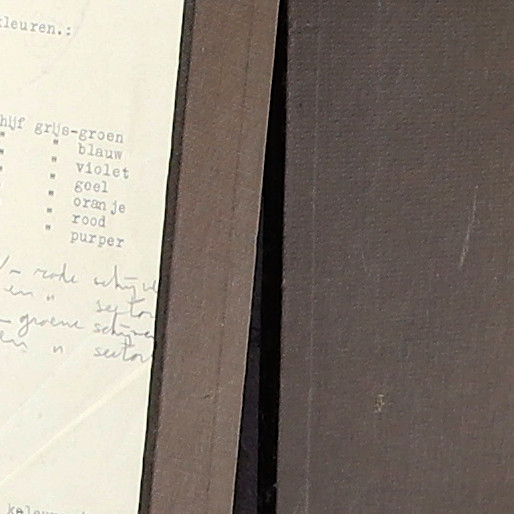 kleuren.:
hijf grijs-groen
" " blauw
" " violet
" " geel
" " oranje
" " rood
" purper
- rode schijve
en " sector
- groene schijven
en " sector